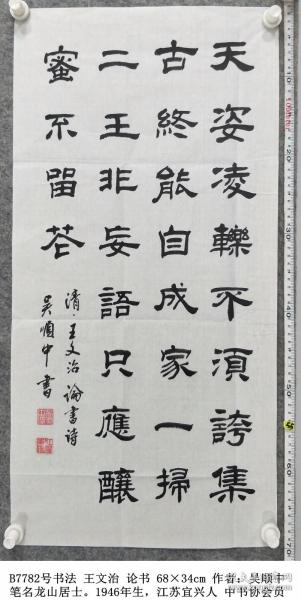 天姿凌轢不須誇集
古終能自成家一掃
二王非妄語只應釀
蜜不留花
清·王文治論書詩
吴順中書
B7782号书法 王文治 论书 68×34cm 作者：吴顺中
笔名龙山居士。1946年生，江苏宜兴人 中书协会员